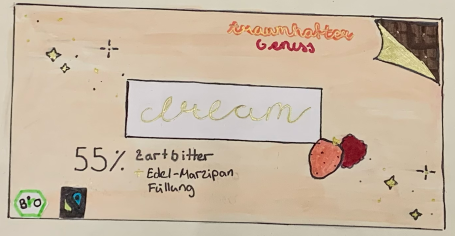 traumhafter
Genuss
dream
55% Zartbitter
+ Edel-Marzipan
Füllung
BIO